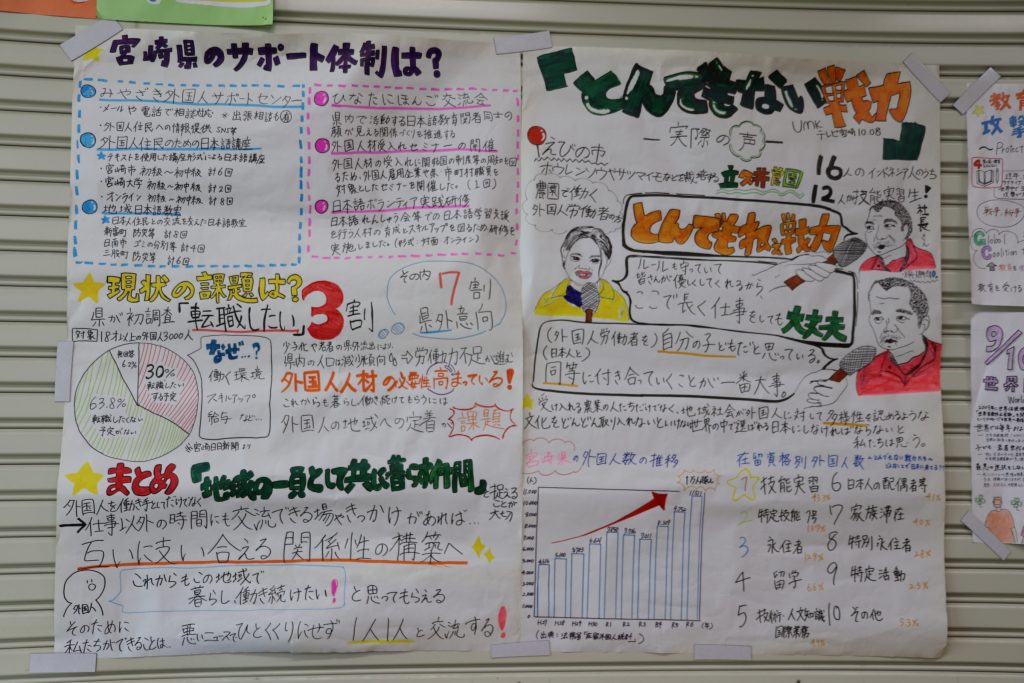 宮崎県のサポート体制は?
みやざき外国人サポートセンター
・メールや電話で相談対応 × 出張相談も有
・外国人住民への情報提供 SNS等
外国人住民のための日本語講座
★テキストを使用した講座形式による日本語講座
・宮崎市 初級〜初中級 計6回
・宮崎大学 初級〜初中級 計2回
・オンライン 初級〜初中級 計8回
地域日本語教室
★日本人住民との交流を交えた日本語教室
新富町 防災等 計8回
日南市 ゴミの分別等 計4回
三股町 防災等 計6回
ひなたにほんご交流会
県内で活動する日本語教育関者同士の
顔が見える関係づくりを推進する
外国人材受入れセミナーの開催
外国人材の受入れに関
るため、外国人雇用企業や県、市町村職員を
対象としたセミナーを開催した。(1回)
日本語ボランティア実践研修
日本語れんしゅう会等での日本語学習支援
を行う人材の育成とスキルアップを図るため研修を
実施しました(形式:対面 オンライン)
現状の課題は?
県が初調査「転職したい」3割
その内 7割
県外意向
対象 18才以上の外国人3000人
無回答 6.2%
30%
転職したい
する予定
63.8%
転職したい
予定がない
なぜ…?
働く環境
スキルアップ
給与 など…
※宮崎日日新聞より
少子化や若者の県外流出により、
県内の人口は減少傾向
労働力不足が進む
外国人人材の必要性高まっている!
これからも暮らし働き続けてもらうには
外国人の地域への定着が課題
まとめ 『地域の一員として共に暮らす仲間』と捉える
ことが大切
外国人を働き手としてだけでなく
→仕事以外の時間にも交流できる場やきっかけがあれば…
互いに支い合える関係性の構築へ
外国人
これからもこの地域で
暮らし働き続けたい! と思ってもらえる
そのために
私たちができることは、悪いニュースでひとくくりにせず 1人1人と交流する!
『とんでもない戦力』
UMK
テレビ宮崎 10.08
ー実際の声ー
えびの市
ホウレンソウやサツマイモなどを
農園で働く
外国人労働者の方
16人のインドネシア人のうち
12人が技能実習生!
社長さん
とんでもねぇ戦力
ルールも守っていて
皆さんが優しくしてくれるから、
ここで長く仕事をしても大丈夫
(外国人労働者を)自分の子どもだと思っている。
(日本人と)
同等に付き合っていくことが一番大事。
★受け入れる農業の人たちだけでなく、地域社会が外国人に対して多様性を認めるような
文化をどんどん取り入れないといけない世界の中で選ばれる日本にしなければならないと
私たちは思う。
宮崎県の外国人数の推移
(人)
1万人超え
H27 H28 H29 H30 R1 R2 R3 R4 R5 R6 (年)
(出典:法務省「在留外国人統計」)
在留資格別外国人数
1 技能実習
2 特定技能1号
3 永住者
4 留学
5 技術・人文知識
国際業務
6 日本人の配偶者等
7 家族滞在
8 特別永住者
9 特定活動
10 その他
教育
攻撃
〜Protect
Global
Coalition t
教育を受ける
9/10
世界
World